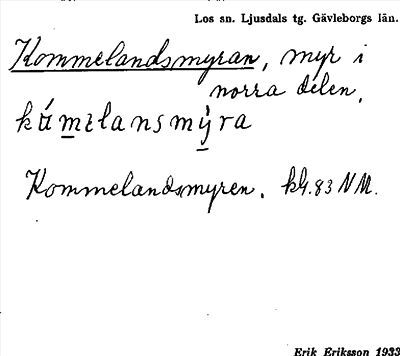 Los sn. Ljusdals tg. Gävleborgs län.
Kommelandsmyran, myr i
norra delen.
Kommelandsmyren. 83 NM.
Erik Eriksson 1933